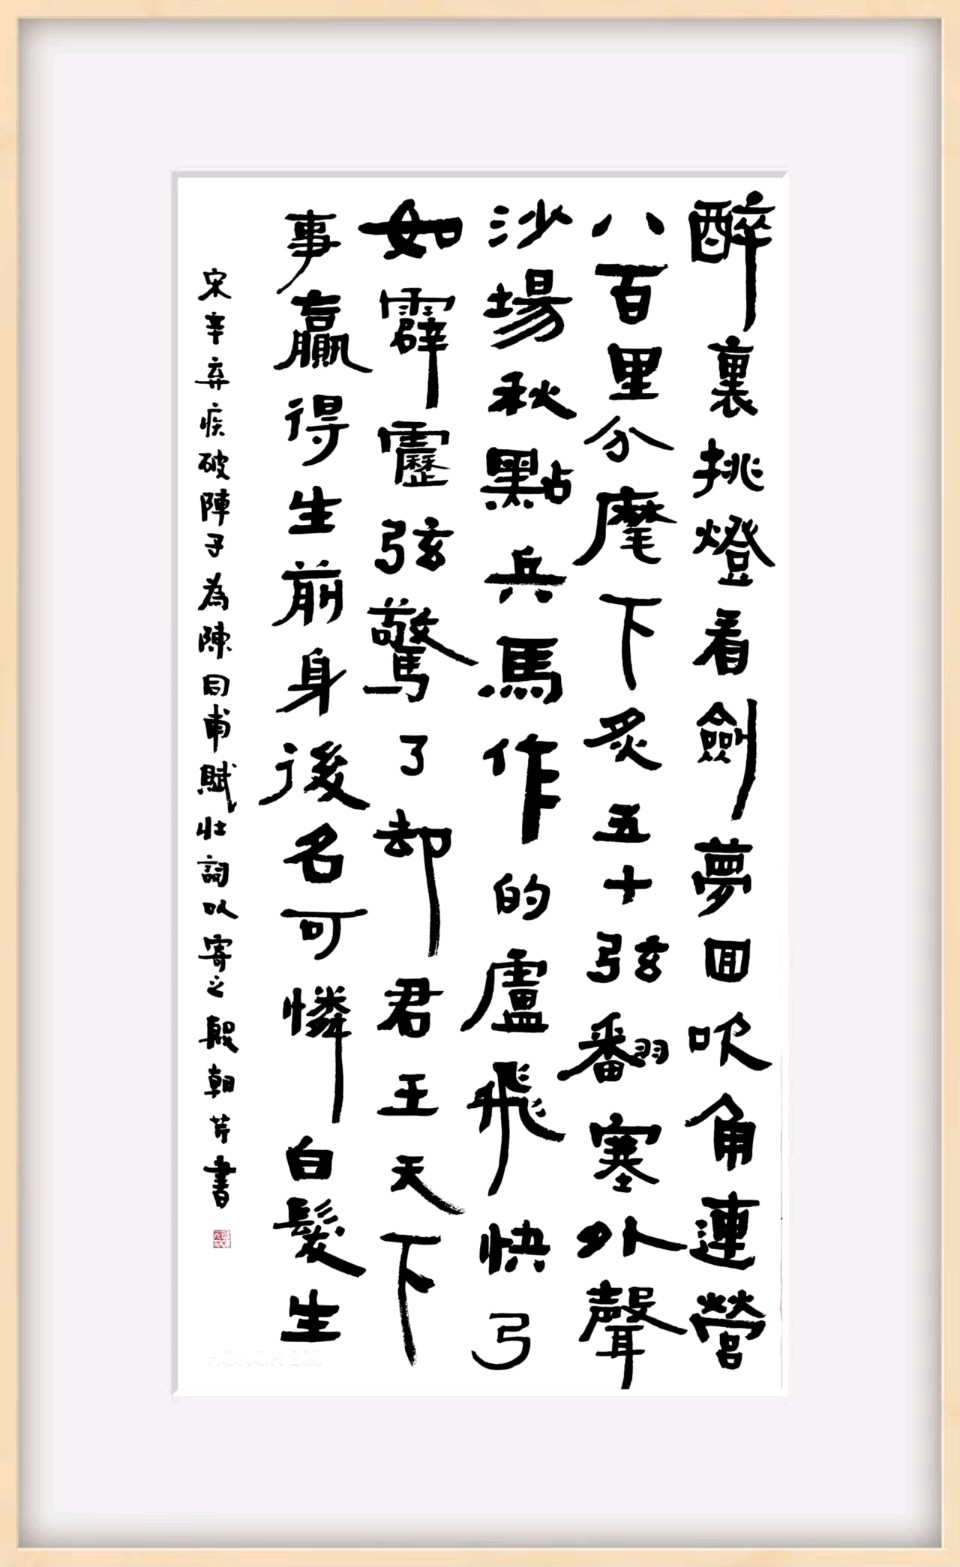 醉裏挑燈看劍夢回吹角連營
八百里分麾下炙五十弦翻塞外聲
沙場秋點兵馬作的盧飛快弓
如霹靂弦驚了却君王天下
事贏得生前身後名可憐白髮生
宋辛弃疾破陣子為陳同甫賦壯詞以寄之殷朝芹書